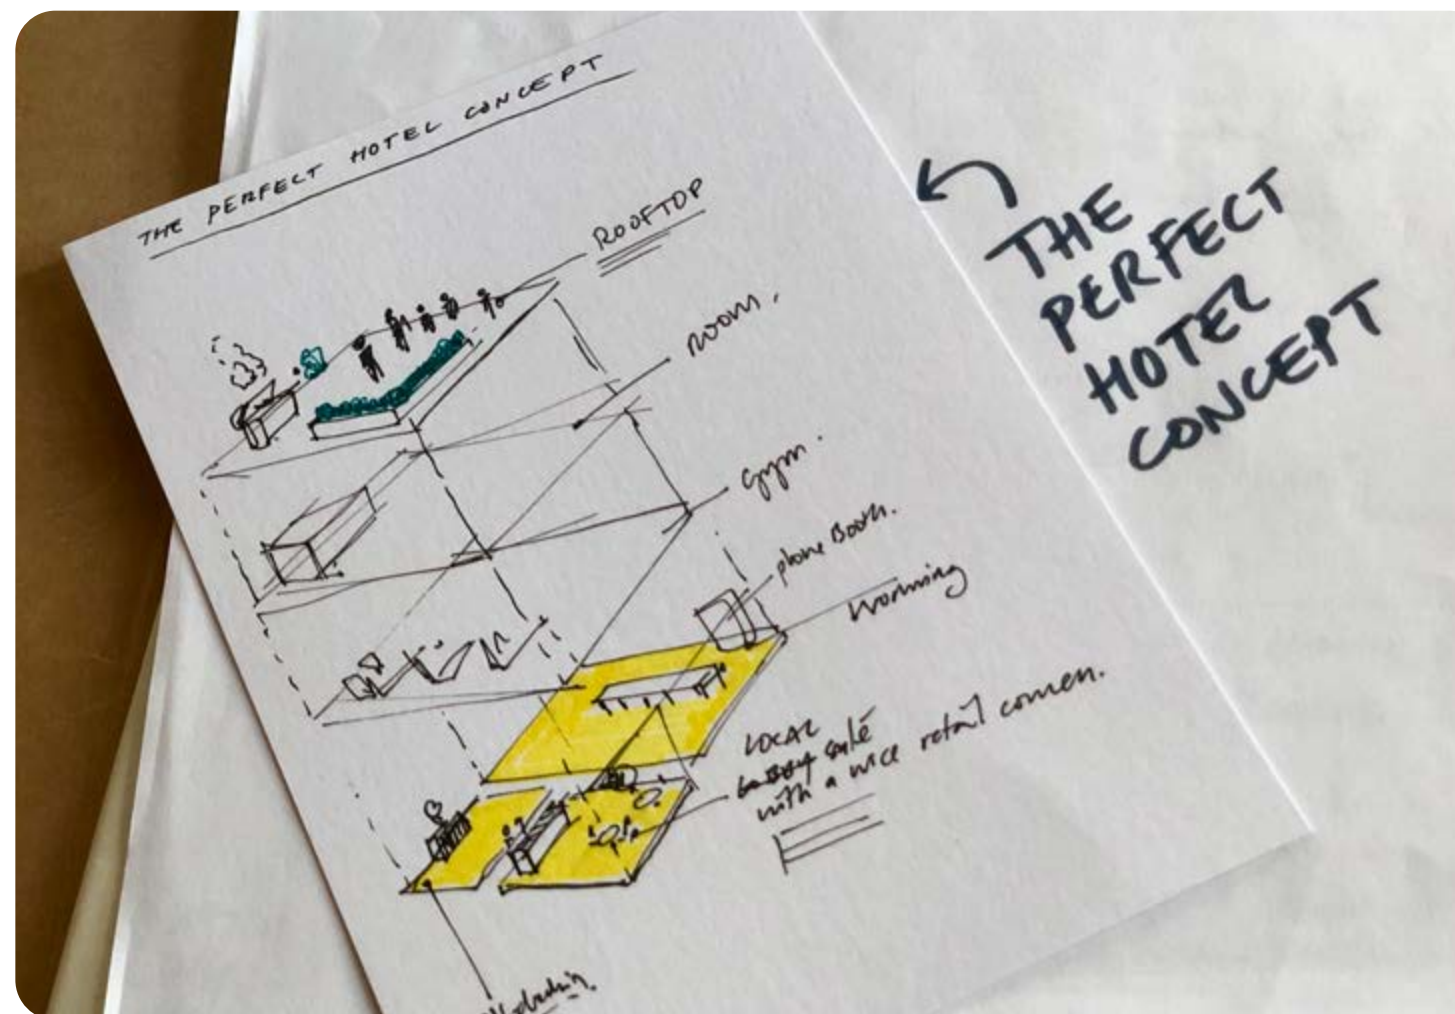 THE PERFECT HOTEL CONCEPT
ROOFTOP
room.
Gym.
phone Booth.
Working
LOCAL
with a nice retail corner.
THE
PERFECT
HOTEL
CONCEPT